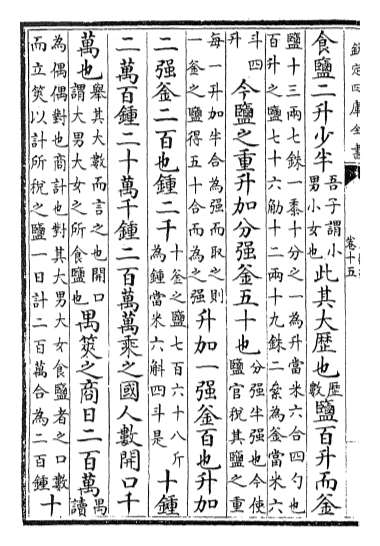 欽定四庫全書
卷十五
食鹽二升少半吾子謂小男小女也此其大歷也歷數鹽百升而釜
鹽十三兩七銖一黍十分之一為升當米六合四勺也
百升之鹽七十六觔十二兩十九銖二絫為釜當米六
斗四升今鹽之重升加分强釜五十也分强半强也今使鹽官税其鹽之重
每一升加半合為强而取之則一釜之鹽得五十合而為之强升加一强釜百也升加
二强釜二百也鍾二千十釜之鹽七百六十八斤為鍾當米六斛四斗是十鍾
二萬百鍾二十萬千鍾二百萬萬乘之國人數開口千
萬也舉其大數而言之也開口謂大男大女之所食鹽也禺筴之商日二百萬禺讀
為偶偶對也商計也對其大男大女食鹽者之口數
而立筴以計所税之鹽一日計二百萬合為二百鍾十